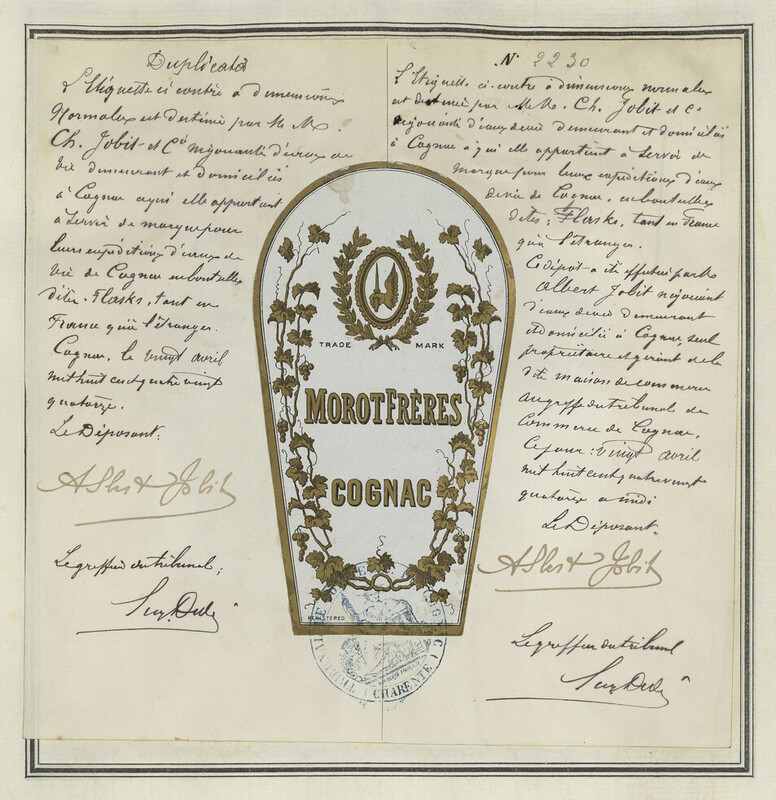 Duplicata
L'Etiquette ci contre à dimensions
Normales est destinée par M M.
Ch. Jobit et Cie négociants d'eaux de
vie demeurant et domiciliés
à Cognac a qui elle appartient
à servir de marque pour
leurs expéditions d'eaux de
vie de Cognac en bouteilles
dites. Flasks, tant en
France qu'à l'étranger.
Cognac, le vingt avril
mil huit cent quatre vingt
quatorze.
Le Déposant:
Albert Jobit
Le greffier du tribunal;
N° 2230
L'Etiquette ci-contre à dimensions normales
est destinée par M M. Ch. Jobit et Cie
négociants d'eaux devie demeurant et domiciliés
à Cognac à qui elle appartient à servir de
marque pour leurs expéditions d'eaux
devie de Cognac, en bouteilles
dites: Flasks, tant en France
qu'à l'étranger.
Ce dépot a été effectué par M
Albert Jobit négociant
d'eaux devie demeurant
et domicilié à Cognac seul
propriétaire et gérant de la
dite maison de commerce
au greffe du tribunal de
Commerce de Cognac,
Ce jour: vingt avril
mil huit cent quatre vingt
quatorze a midi
Le Déposant.
Albert Jobit
Le greffier du tribunal
TRADE MARK
MOROT FRÈRES
COGNAC
REGISTERED
CHARENTE